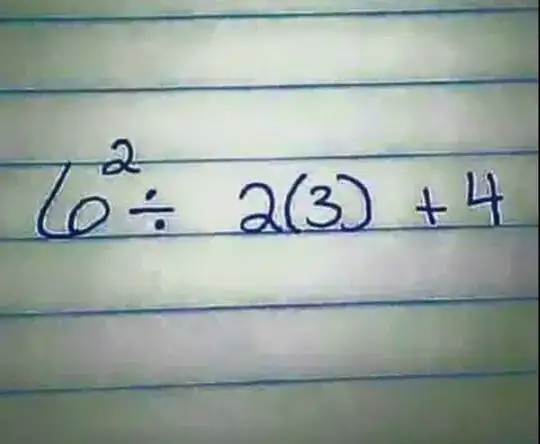 6² ÷ 2(3) + 4